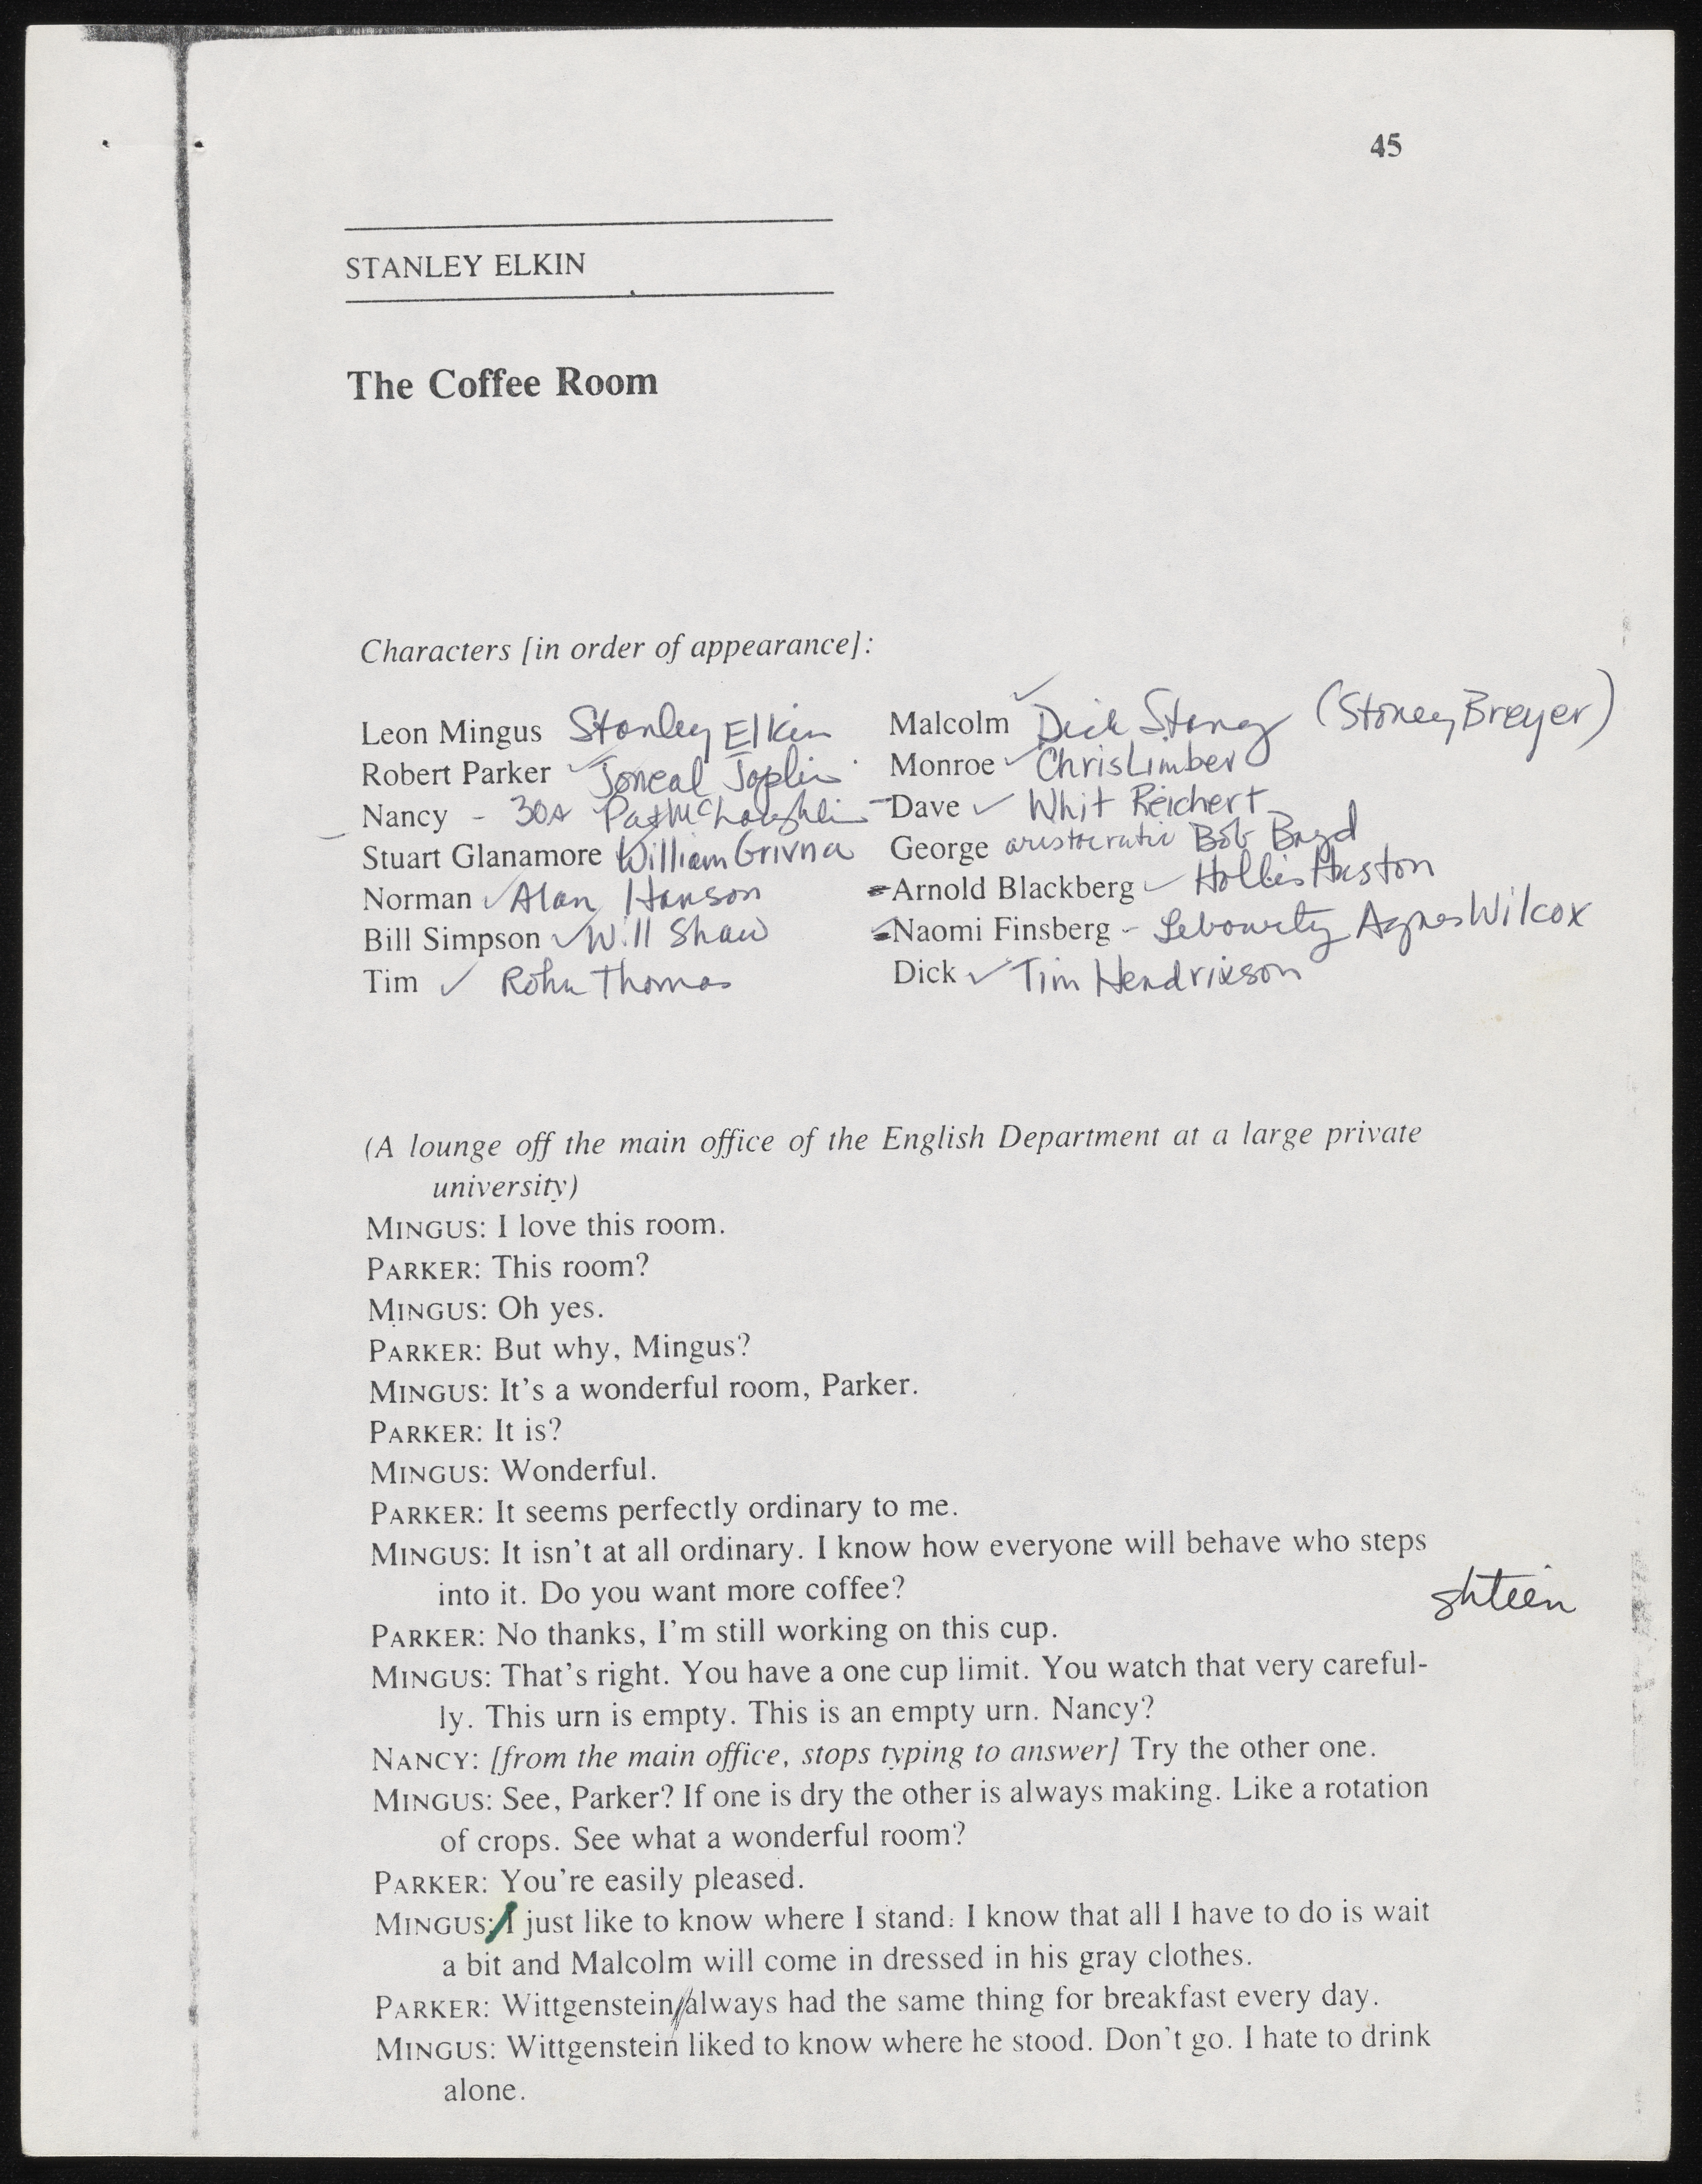 45
STANLEY ELKIN
The Coffee Room
Characters [in order of appearance]:
Leon Mingus Stanley Elkin
Robert Parker ✓ Joneal Joplin
Nancy - 30s Pat McLaughlin
Stuart Glanamore William Grivna
Norman ✓ Alan Hanson
Bill Simpson ✓ Will Shaw
Tim ✓ Rohn Thomas
Malcolm ✓ Dick Stang (Stoney Breyer)
Monroe ✓ Chris Limber
Dave ✓ Whit Reichert
George aristocratic Bob Boyd
Arnold Blackberg ✓ Hollis Huston
Naomi Finsberg - Agnes Wilcox
Dick ✓ Tim Hendrixson
(A lounge off the main office of the English Department at a large private
university)
MINGUS: I love this room.
PARKER: This room?
MINGUS: Oh yes.
PARKER: But why, Mingus?
MINGUS: It's a wonderful room, Parker.
PARKER: It is?
MINGUS: Wonderful.
PARKER: It seems perfectly ordinary to me.
MINGUS: It isn't at all ordinary. I know how everyone will behave who steps
into it. Do you want more coffee?
shteen
PARKER: No thanks, I'm still working on this cup.
MINGUS: That's right. You have a one cup limit. You watch that very careful-
ly. This urn is empty. This is an empty urn. Nancy?
NANCY: [from the main office, stops typing to answer] Try the other one.
MINGUS: See, Parker? If one is dry the other is always making. Like a rotation
of crops. See what a wonderful room?
PARKER: You're easily pleased.
MINGUS: I just like to know where I stand: I know that all I have to do is wait
a bit and Malcolm will come in dressed in his gray clothes.
PARKER: Wittgenstein//always had the same thing for breakfast every day.
MINGUS: Wittgenstein liked to know where he stood. Don't go. I hate to drink
alone.